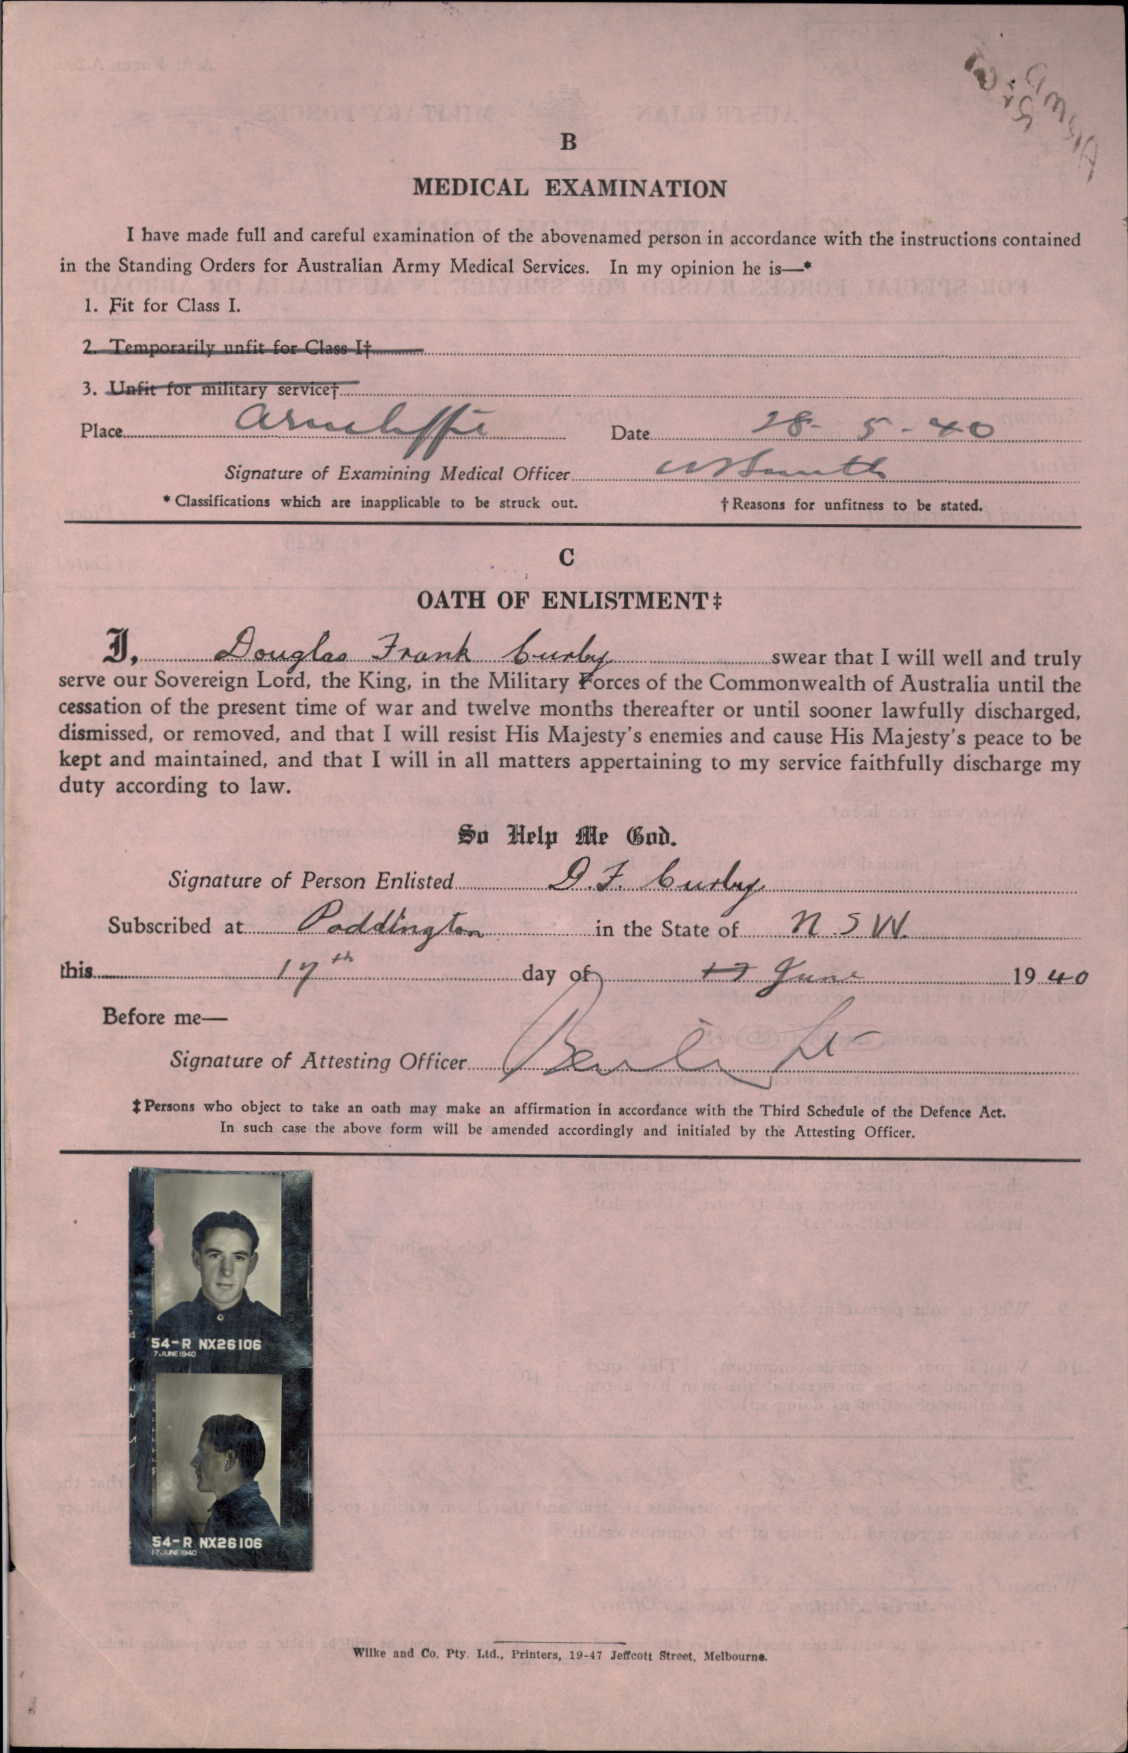 B
MEDICAL EXAMINATION
I have made full and careful examination of the abovenamed person in accordance with the instructions contained
in the Standing Orders for Australian Army Medical Services. In my opinion he is—*
1. Fit for Class I.
2. Temporarily unfit for Class I†
3. Unfit for military service†
Place Arncliffe Date 28-5-40
Signature of Examining Medical Officer
* Classifications which are inapplicable to be struck out. † Reasons for unfitness to be stated.
C
OATH OF ENLISTMENT‡
I, Douglas Frank Curby swear that I will well and truly
serve our Sovereign Lord, the King, in the Military Forces of the Commonwealth of Australia until the
cessation of the present time of war and twelve months thereafter or until sooner lawfully discharged,
dismissed, or removed, and that I will resist His Majesty's enemies and cause His Majesty's peace to be
kept and maintained, and that I will in all matters appertaining to my service faithfully discharge my
duty according to law.
So Help Me God.
Signature of Person Enlisted D.F. Curby
Subscribed at Paddington in the State of N.S.W.
this 17th day of 17 June 1940
Before me—
Signature of Attesting Officer Lt
‡ Persons who object to take an oath may make an affirmation in accordance with the Third Schedule of the Defence Act.
In such case the above form will be amended accordingly and initialed by the Attesting Officer.
54-R NX26106
7.JUNE 1940
54-R NX26106
17.JUNE 1940
Wilke and Co. Pty. Ltd., Printers, 19-47 Jeffcott Street, Melbourne.